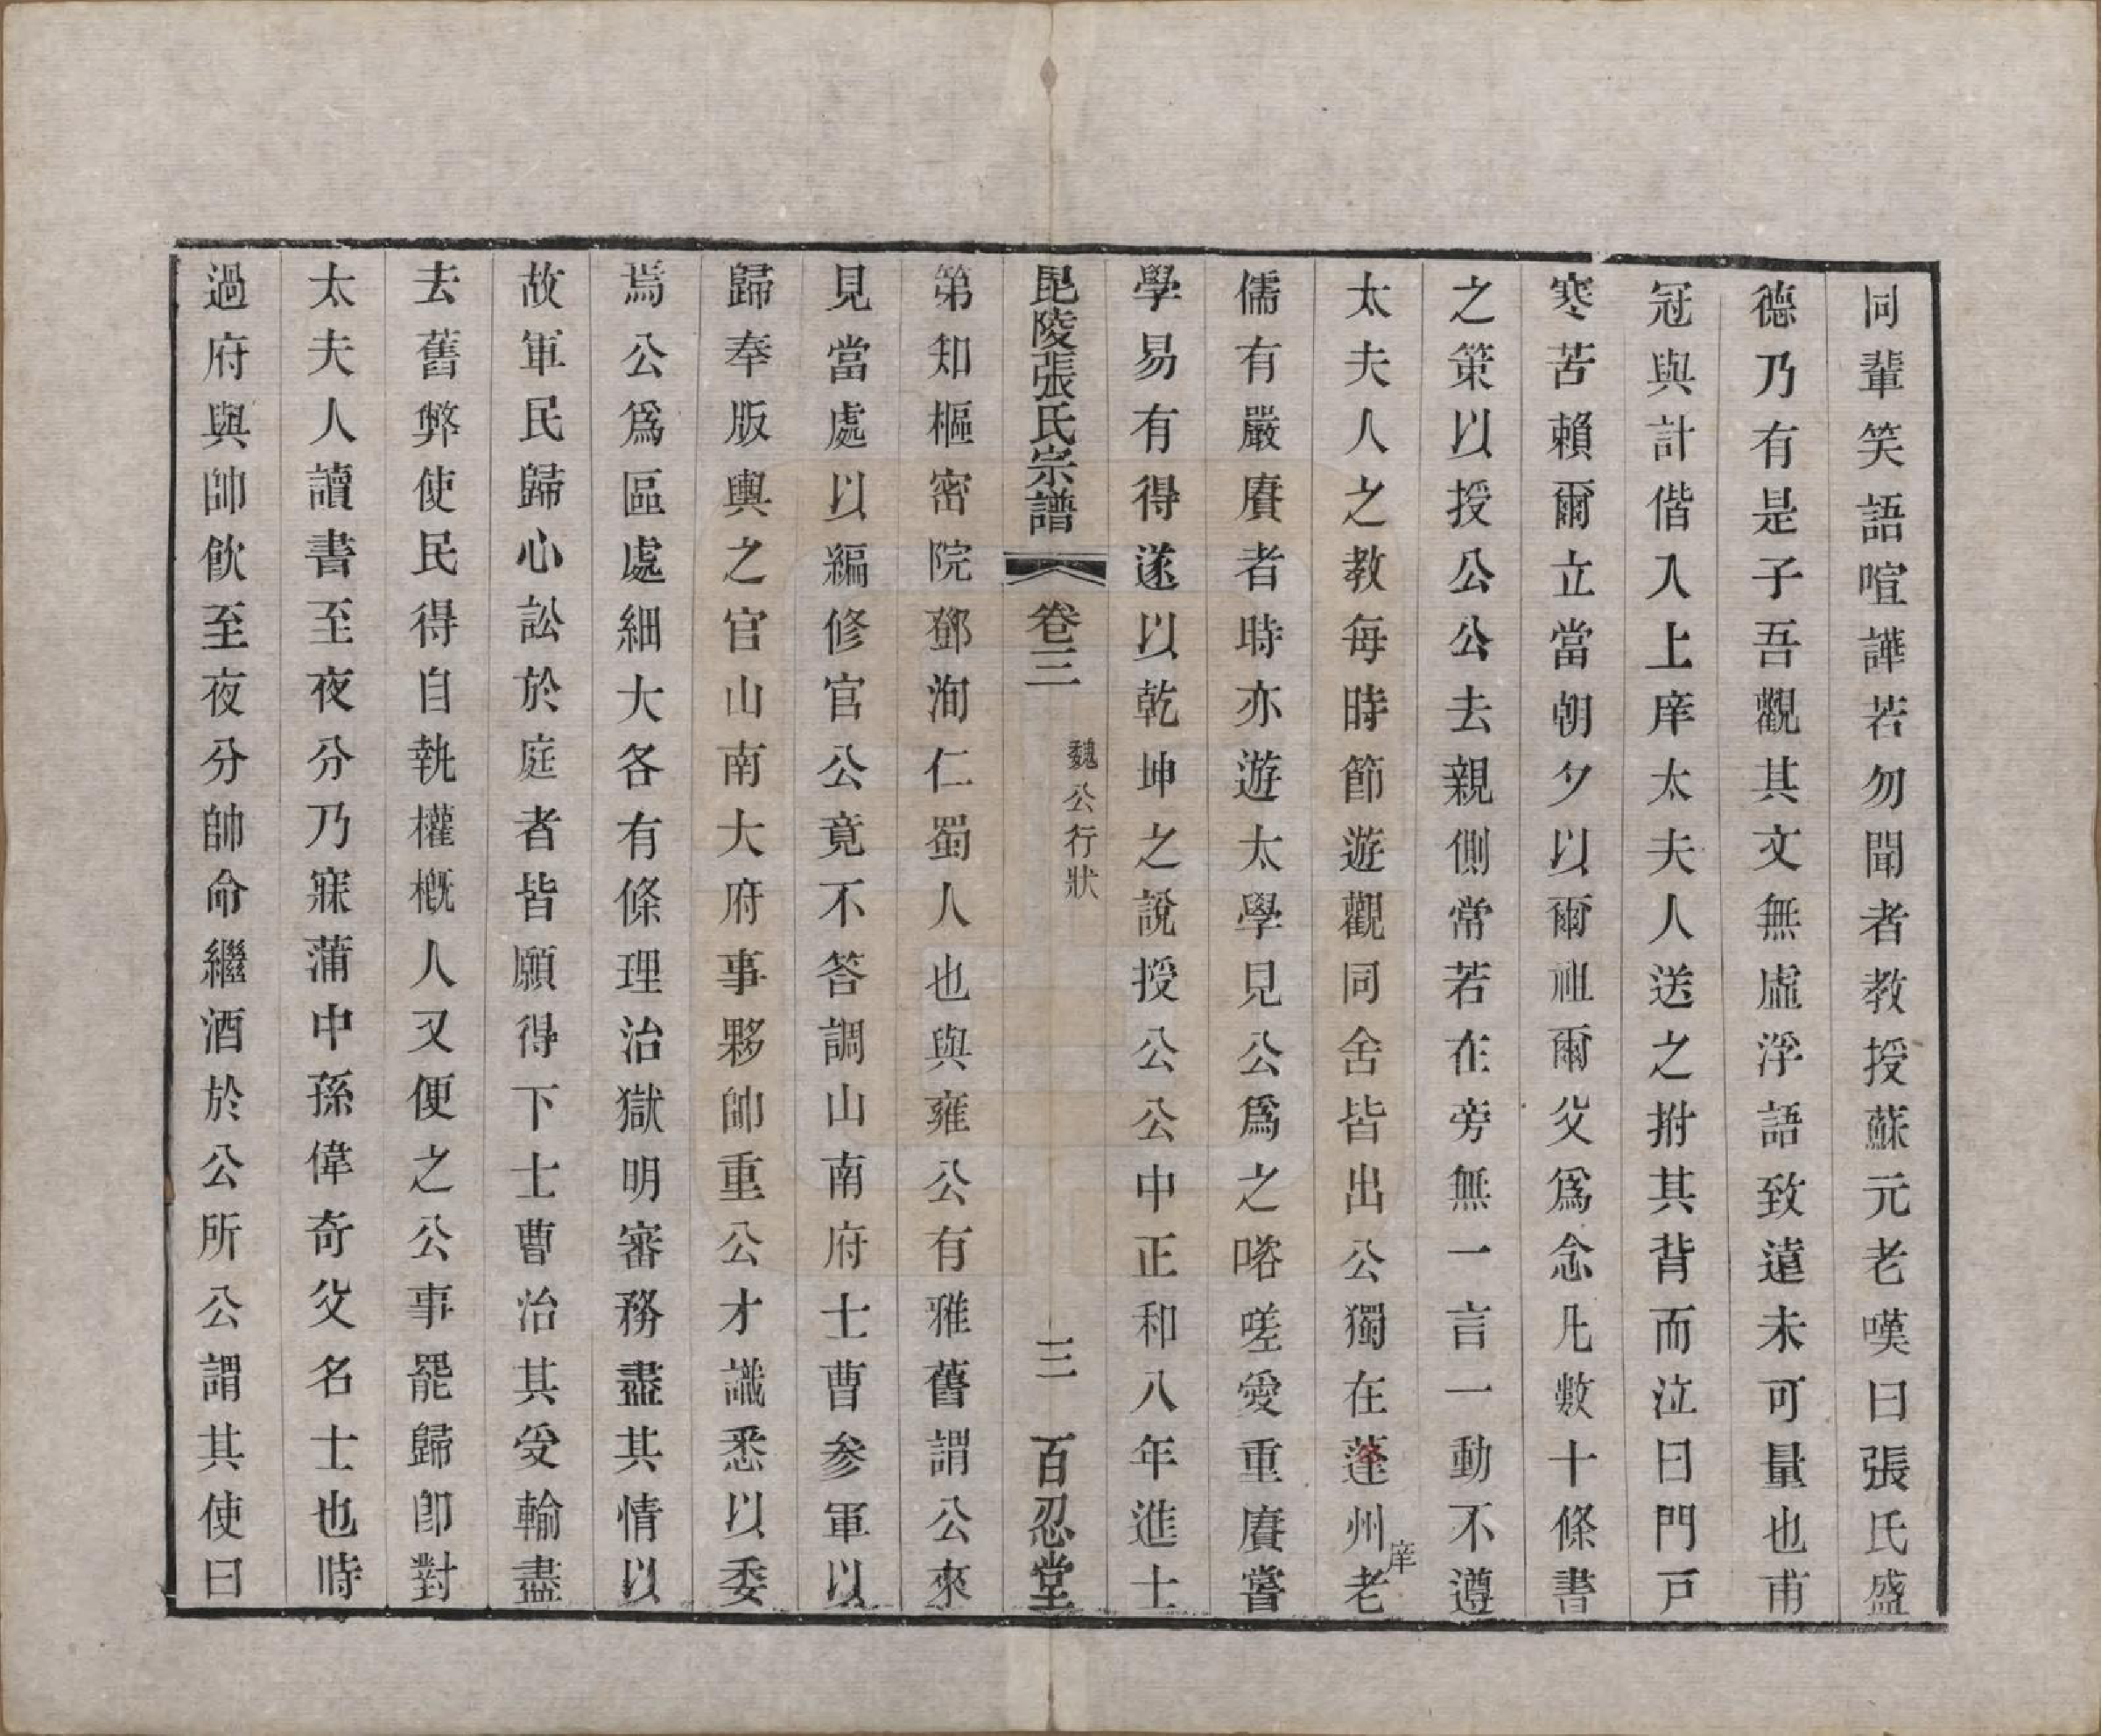 同輩笑語喧譁若勿聞者教授蘇元老嘆曰張氏盛
德乃有是子吾觀其文無虛浮語致遠未可量也甫
冠與計偕入上庠太夫人送之拊其背而泣曰門戸
寒苦賴爾立當朝夕以爾祖爾父爲念凡數十條書
之策以授公公去親側常若在旁無一言一動不遵
太夫人之教每時節遊觀同舍皆出公獨在蓬州老
庠
儒有嚴賡者時亦遊太學見公爲之嗟嗟愛重賡嘗
學易有得遂以乾坤之說授公公中正和八年進士
毘陵張氏宗譜 卷三 魏公行狀 三 百忍堂
第知樞密院鄧洵仁蜀人也與雍公有雅舊謂公來
見當處以編修官公竟不答調山南府士曹參軍以
歸奉版輿之官山南大府事夥帥重公才識悉以委
焉公爲區處細大各有條理治獄明審務盡其情以
故軍民歸心訟於庭者皆願得下士曹治其受輸盡
去舊弊使民得自執權槪人又便之公事罷歸卽對
太夫人讀書至夜分乃寐蒲中孫偉奇父名士也時
過府與帥飲至夜分帥命繼酒於公所公謂其使曰